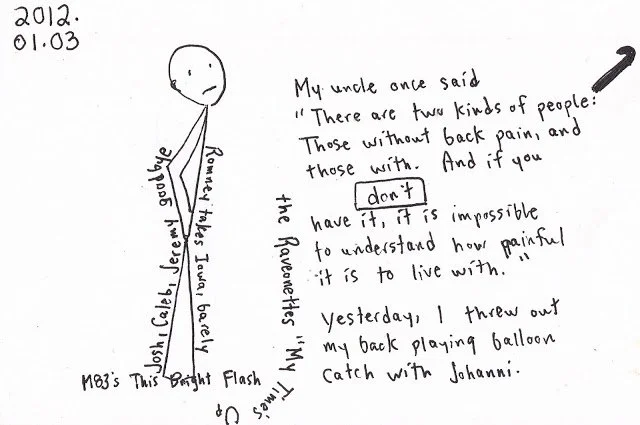 2012.
01.03
My uncle once said
"There are two kinds of people:
Those without back pain, and
those with. And if you
don't
have it, it is impossible
to understand how painful
it is to live with."
Yesterday, I threw out
my back playing balloon
catch with Johanni.
Josh, Caleb, Jeremy goodbye
Romney takes Iowa, barely
M83's This Bright Flash
the Raveonettes "My Time's Up